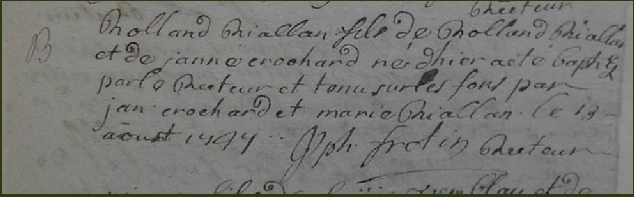 Recteur
B Rolland Riallan fils de Rolland Riallan
et de janne crochard né d'hier a eté baptizé
par le Recteur et tenu sur les fons par
jan crochard et marie Riallan. le 13
aoust 1747
Jph frotin Recteur
fils de et de